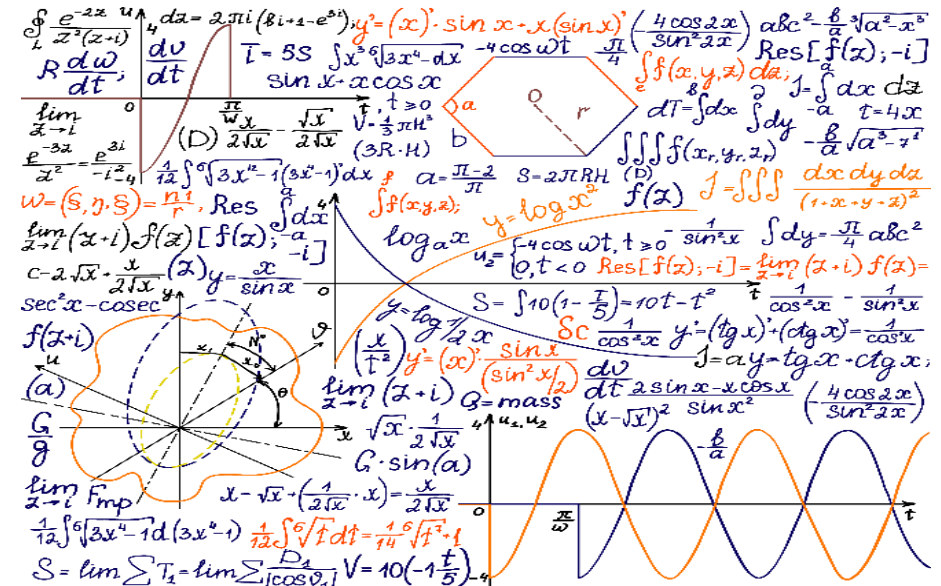 ∮ e^-2z / z²(z+i)
L
u
4
dz = 2πi (Bi+1 - e^3i);
y' = (x)' · sin x + x(sin x)'
(4 cos 2x / sin² 2x)
abc² - b/a ³√a² - x³
R dω/dt;
dv/dt
I = 5S
∫x³ ⁶√3x⁴ - dx
-4 cos ωt
-π/4
Res[f(z); -i]
sin x + x cos x
∫f(x, y, z) dz;
e
J = ∫dx dz
a
0
π/W
t
t ≥ 0
a
O
r
dT = ∫dx ∫dy -a
t = 4x
lim
z→i
(D) x/2√x - √x/2√x
V = 1/3 πH³
(3R · H)
b
∫∫∫f(x_r, y_r, z_r)
-b/a √a³ - 7²
e^-3z / z² = e^3i / -i²
-4
1/12 ∫⁶√3x⁴ - 1 (3x⁴ - 1)' dx
a = π-2/π
S = 2πRH
(D)
f(z)
J = ∫∫∫ dx dy dz / (1+x+y+z)²
W = (§, η, §) = n1/r,
Res
∫dx
-a
4
∫f(x, y, z);
y = log x²
lim (z+i) f(z) [f(z); -i]
z→i
log_a x
u₂ = {-4 cos ωt, t ≥ 0
0, t < 0
- 1/sin² x
∫dy = -π/4 abc²
C - 2√x + x/2√x
(z) y = x/sin x
0
Res[f(z); -i] = lim (z+i) f(z) =
z→i
t
sec² x - cosec
y
y = log 1/2 x
S = ∫10(1 - t/5) = 10t - t²
1/cos² x - 1/sin² x
f(z+i)
x
N°
x
ϑ
(x/t²)
y' = (x)' sin x / (sin² x/2)
δc 1/cos² x
y' = (tg x)' + (ctg x)' = 1/cos² x
u
J = a y = tg x + ctg x;
(a)
θ
lim (z+i)
z→i
Q = mass
dv/dt
2 sin x - x cos x / sin x²
(x - √x)²
(4 cos 2x / sin² 2x)
G/g
x
√x · 1/2√x
4
u₁, u₂
-b/a
G · sin(a)
lim Fmp
z→i
x - √x + (1/2√x · x) = x/2√x
0
π/ω
t
1/12 ∫⁶√3x⁴ - 1 d(3x⁴ - 1)
1/12 ∫⁶√t dt = 1/14 ⁶√t² + 1
S = lim ∑ T₁ = lim ∑ D₁ / |cos ϑ₁|
V = 10(-1 t/5)
-4